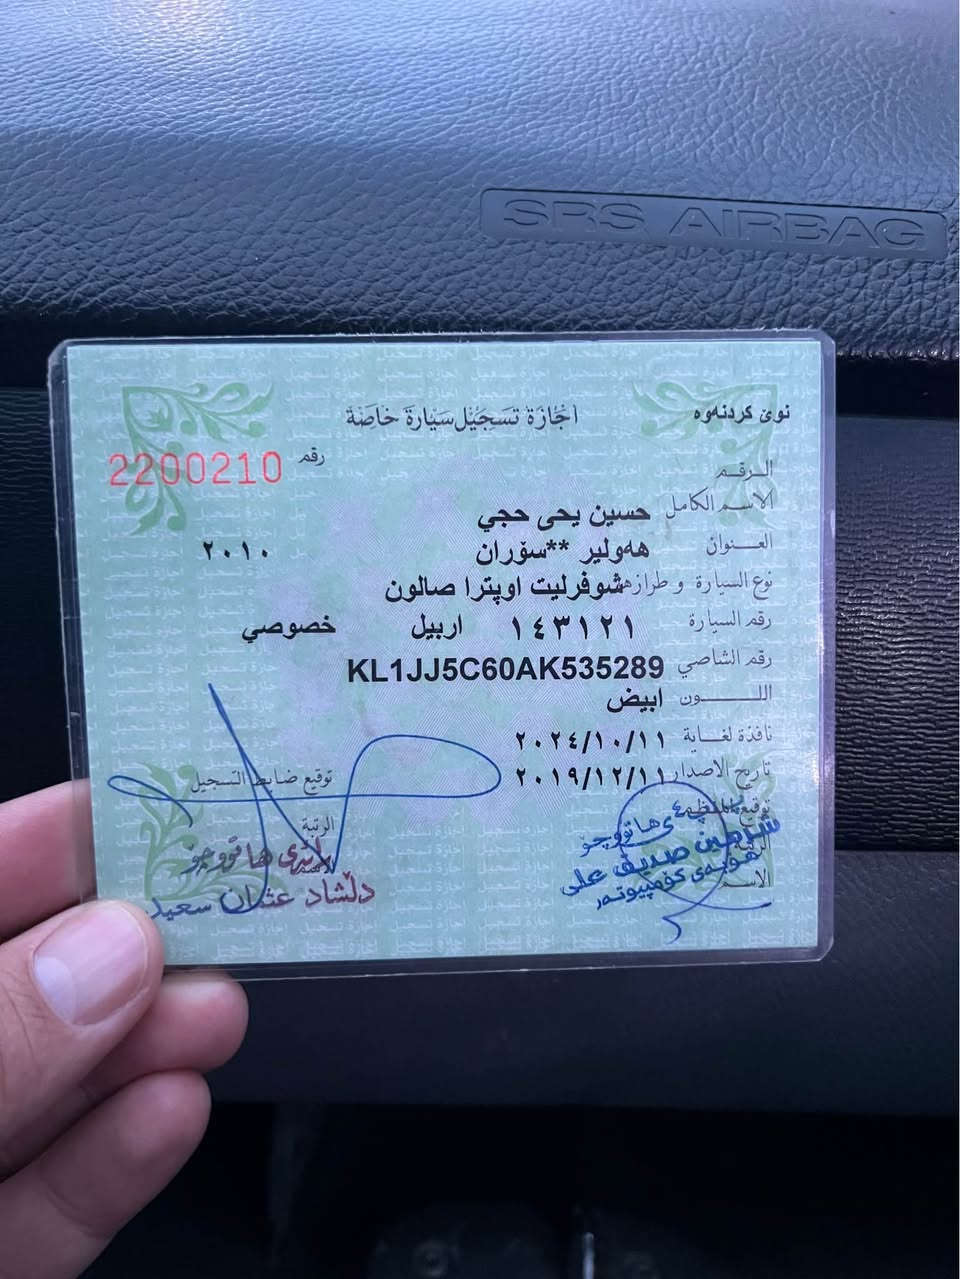 SRS AIRBAG
نوێ کردنەوە
اجازة تسجيل سيارة خاصة
رقم 2200210
الرقم
الاسم الكامل حسين يحى حجي
العنوان هەولیر **سۆران ٢٠١٠
نوع السيارة و طرازها شوفرليت اوپترا صالون
رقم السيارة ١٤٣١٢١ اربيل خصوصي
رقم الشاصي KL1JJ5C60AK535289
اللون ابيض
نافذة لغاية ٢٠٢٤/١٠/١١
تاريخ الاصدار ٢٠١٩/١٢/١١
توقيع المنظم
الرتبة
الاسم
شاهين صديق علي
هۆبەی کۆمپیوتەر
توقيع ضابط التسجيل
الرتبة
هاتووچۆ
دڵشاد عثمان سعيد